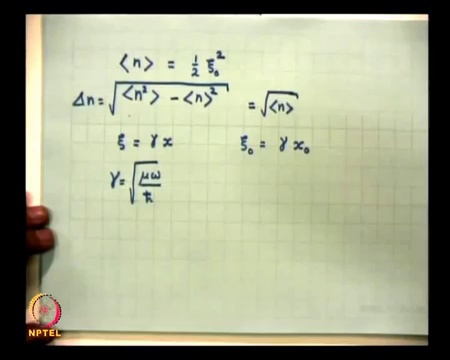 ⟨n⟩ = 1/2 ξ₀²
Δn = √(⟨n²⟩ − ⟨n⟩²) = √⟨n⟩
ξ = γ x ξ₀ = γ x₀
γ = √(μω/ħ)
NPTEL